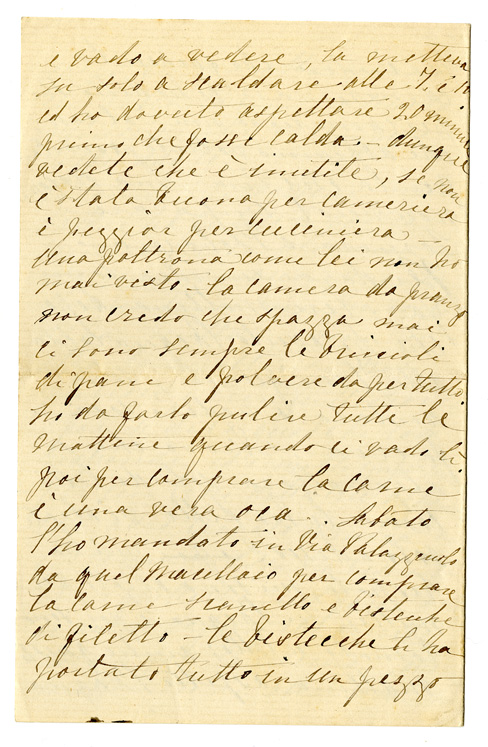 e vado a vedere, la metteva
su solo a scaldare alle 7, e 10
ed ho dovuto aspettare 20 minuti
primo che fosse calda – dunque
vedete che è inutile, se non
è stata buona per cameriera
è peggior per cuciniera –
una poltrona come lei non ho
mai visto – la camera da pranzo
non credo che spazza mai
ci sono sempre le briscioli
di pane e polvere da per tutto
ho da farlo pulire tutte le
mattine quando ci vado lì.
poi per comprare la carne
è una vera oca.. Sabato
l'ho mandato in Via Palazzuolo
da quel macellaio per comprare
la carne scanello e bistecche
di filetto – le bistecche li ha
portato tutto in un pezzo